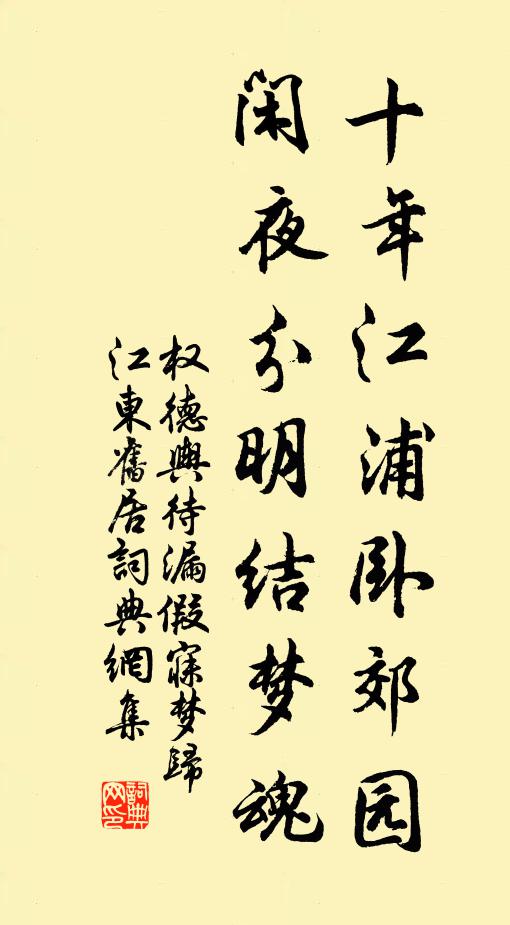 十年江浦卧郊园
闲夜分明结梦魂
权德舆待漏假寐梦歸
江東舊居詞典網集
詞典
网印